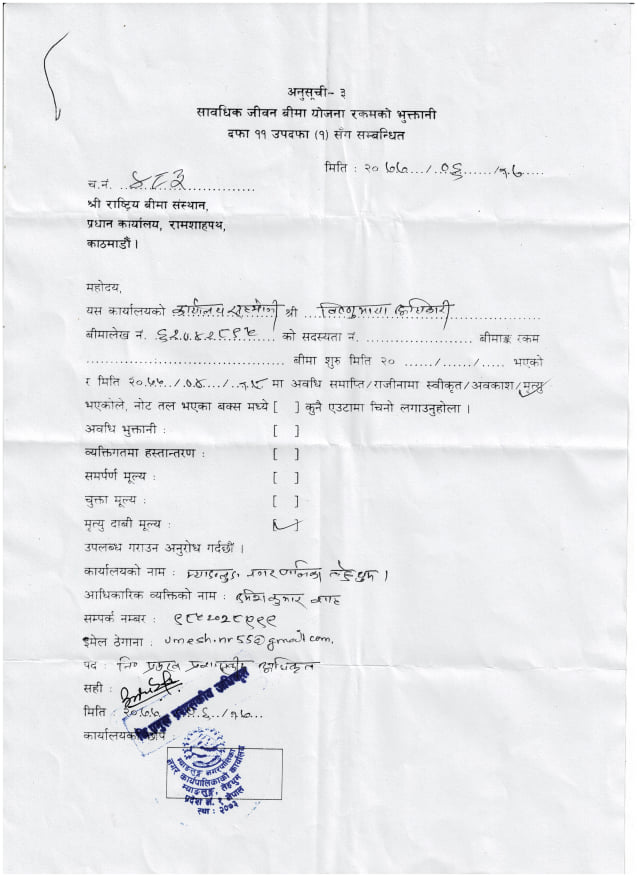 अनुसूची- ३
सावधिक जीवन बीमा योजना रकमको भुक्तानी
दफा ११ उपदफा (१) सँग सम्बन्धित
मिति : २० ७७ / ०६ / १७
च.नं. ४८३
श्री राष्ट्रिय बीमा संस्थान,
प्रधान कार्यालय, रामशाहपथ,
काठमाडौं ।
महोदय,
यस कार्यालयको कार्यालय सहयोगी श्री विष्णुमाया अधिकारी
बीमालेख नं. को सदस्यता नं. बीमाङ्क रकम
बीमा शुरु मिति २० ....../....../..... भएको
र मिति २० मा अवधि समाप्ति/राजीनामा स्वीकृत/अवकाश/मृत्यु
भएकोले, नोट तल भएका बक्स मध्ये [ ] कुनै एउटामा चिनो लगाउनुहोला ।
अवधि भुक्तानी : [ ]
व्यक्तिगतमा हस्तान्तरण : [ ]
समर्पण मूल्य : [ ]
चुक्ता मूल्य : [ ]
मृत्यु दाबी मूल्य : [✓]
उपलब्ध गराउन अनुरोध गर्दछौं ।
कार्यालयको नाम : म्याङलुङ नगरपालिका तेह्रथुम ।
आधिकारिक व्यक्तिको नाम : उमेशकुमार
सम्पर्क नम्बर : ९८४२०२८९९९
इमेल ठेगाना : umesh.nr55@gmail.com.
पद : नि० प्रमुख प्रशासकीय अधिकृत
सही :
मिति : २० ७७ / ६ / १७
नि.प्रमुख प्रशासकीय अधिकृत
कार्यालयको छाप :
म्याङलुङ नगरपालिका
नगर कार्यपालिकाको कार्यालय
म्याङलुङ, तेह्रथुम
प्रदेश नं. १ नेपाल
स्था : २०७३